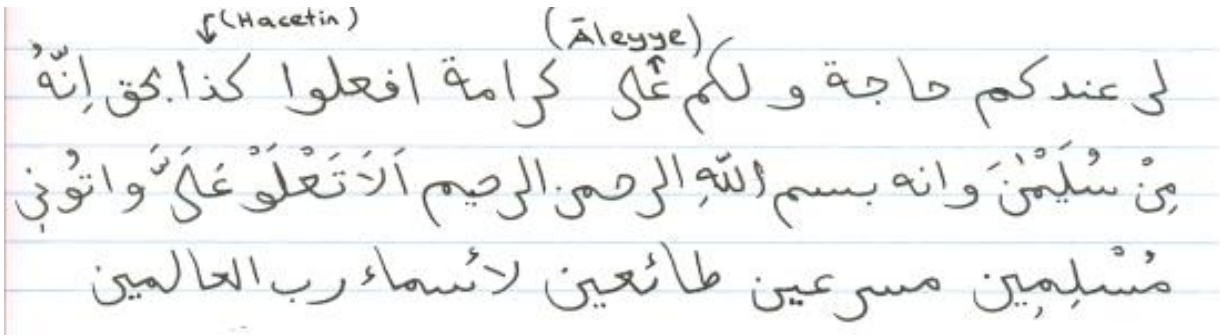 (Hacetin) (Āleyye)
لى عندكم حاجة و لكم عَلى كرامة افعلوا كذا بحق اِنّهُ
مِنْ سُلَيْمٰنَ وانه بسم اللّهِ الرحمن الرحيم اَلَاتَعْلَوْ عَلَىَّ واتوُنِى
مُسْلِمِين مسرعين طائعين لأسماء رب العالمين